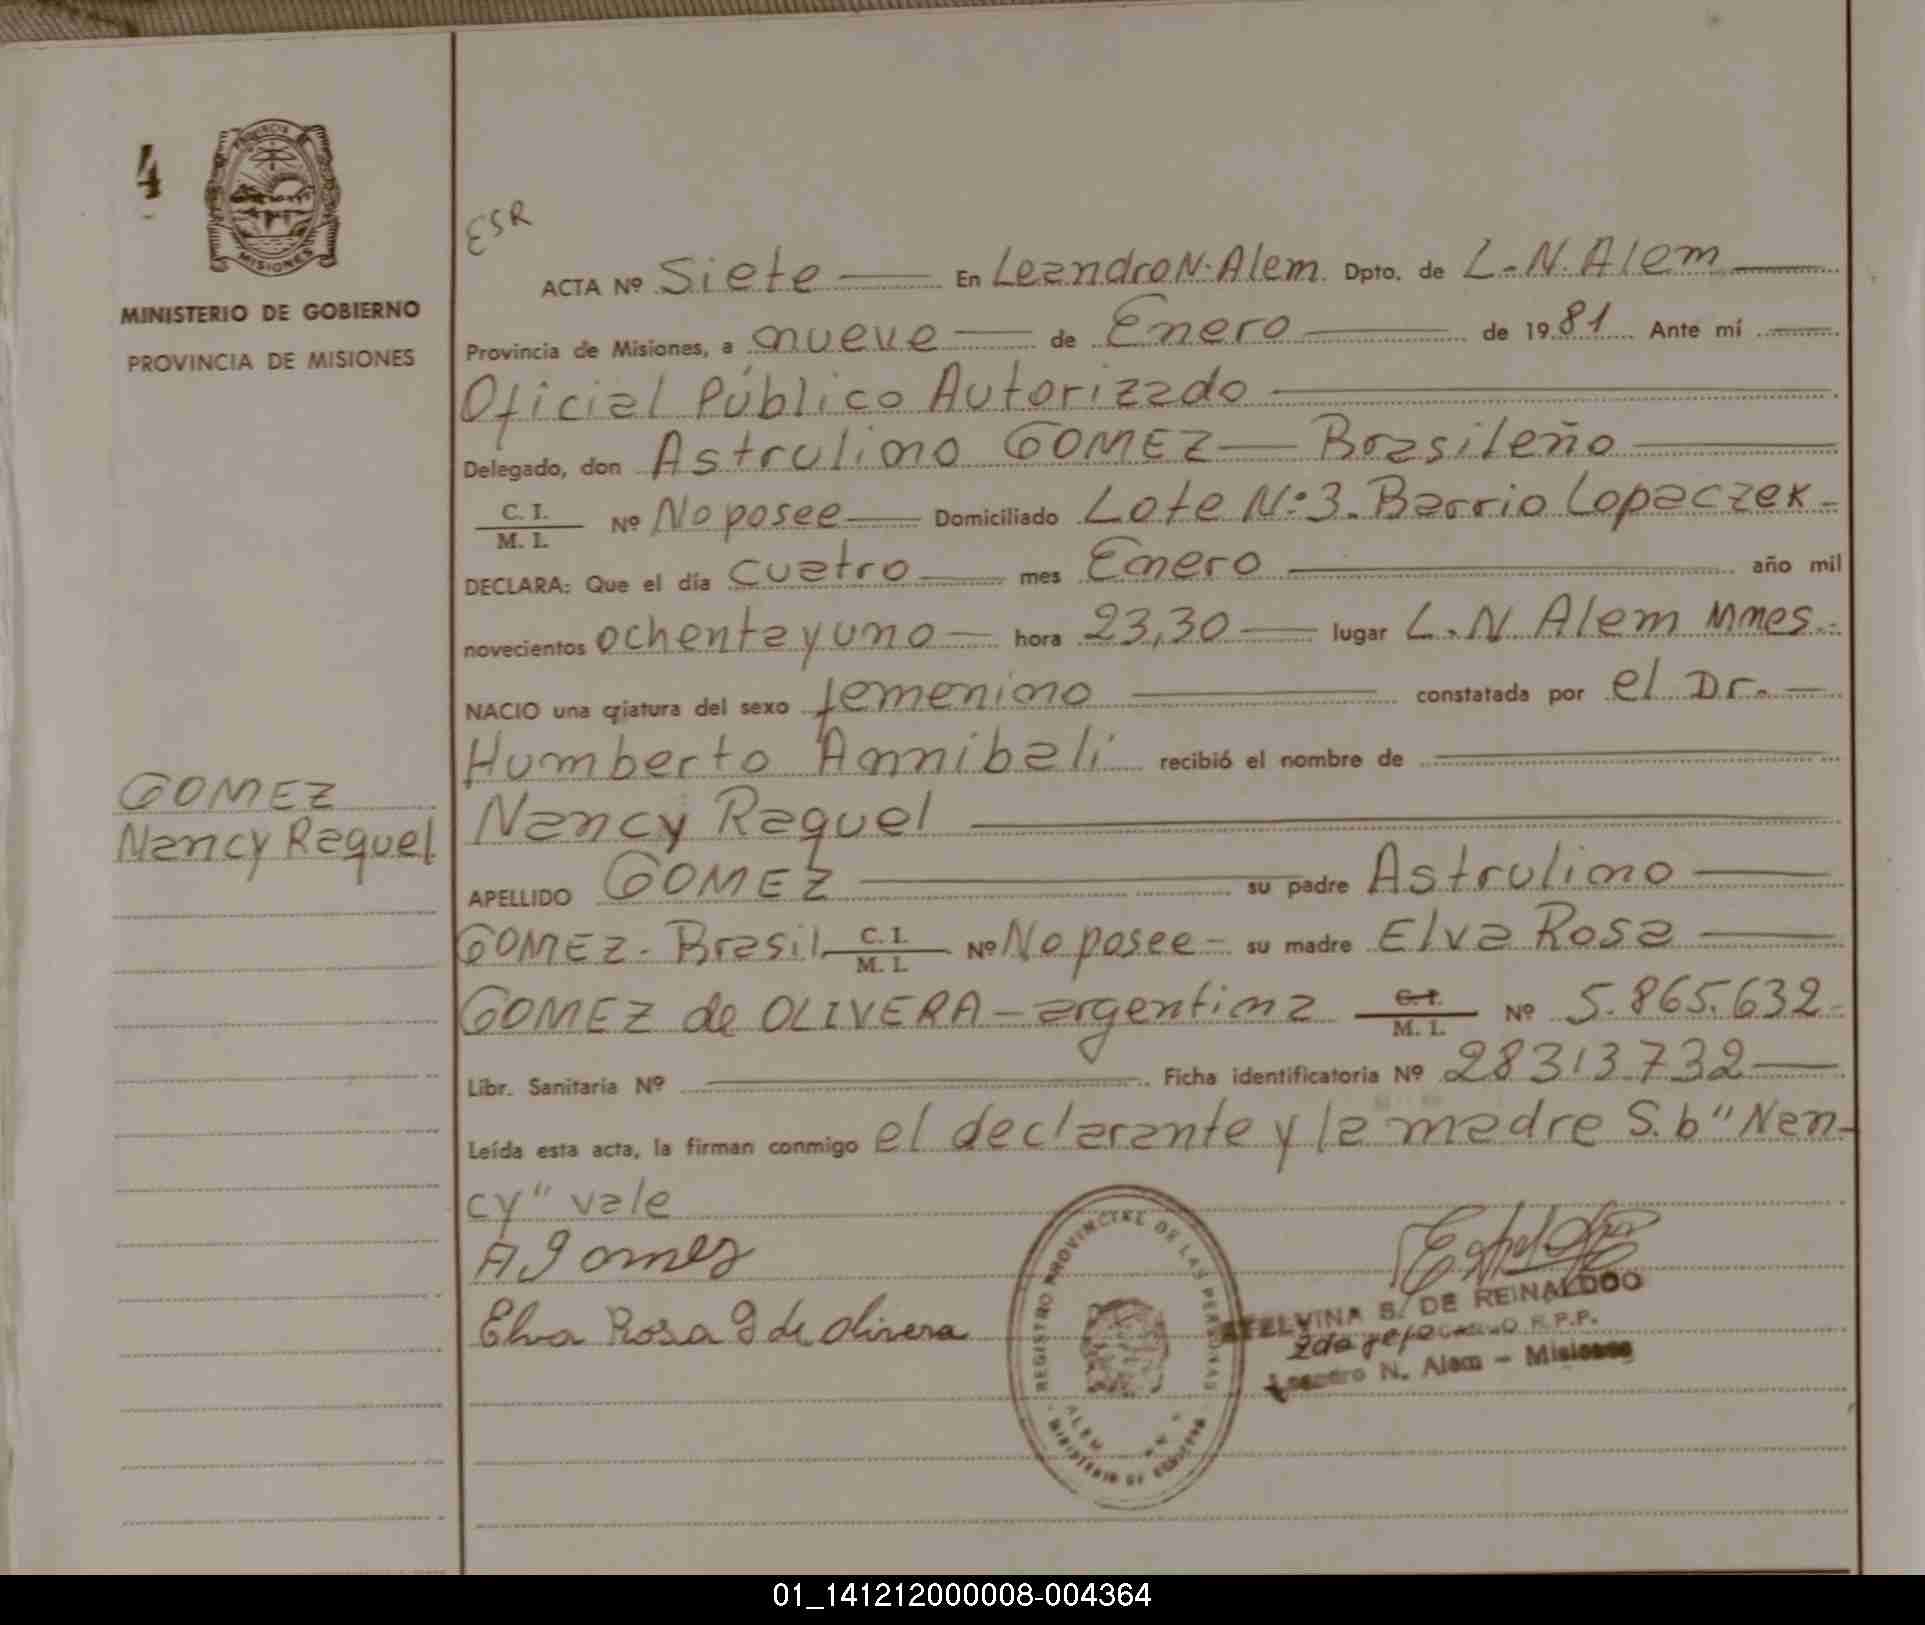 4
PROVINCIA DE
MISIONES
MINISTERIO DE GOBIERNO
PROVINCIA DE MISIONES
GOMEZ
Nancy Raquel
ESR
ACTA Nº Siete En Leandro N. Alem. Dpto. de L. N. Alem
Provincia de Misiones, a nueve de Enero de 1981 Ante mí
Oficial Público Autorizado
Delegado, don Astrulino GOMEZ — Brasileño
C. I.
M. I.
Nº No posee — Domiciliado Lote Nº 3. Barrio Lopaczek -
DECLARA: Que el día cuatro mes Enero año mil
novecientos ochenta y uno hora 23,30 lugar L. N. Alem Mnes.
NACIO una criatura del sexo femenino constatada por el Dr.
Humberto Annibali recibió el nombre de
Nancy Raquel
APELLIDO GOMEZ su padre Astrulino
GOMEZ - Brasil C. I. M. I. Nº No posee - su madre Elva Rosa
GOMEZ de OLIVERA - argentina C. I. M. I. Nº 5.865.632
Libr. Sanitaria Nº Ficha identificatoria Nº 28313732
Leída esta acta, la firman conmigo el declarante y la madre S. b "Nan-
cy" vale
A Gomez
Elva Rosa G de Olivera
REGISTRO PROVINCIAL DE LAS PERSONAS
ALEM
MINISTERIO DE GOBIERNO
ETELVINA B. DE REINALDOO
2da Jefe R.P.P.
Leandro N. Alem - Misiones
01_141212000008-004364